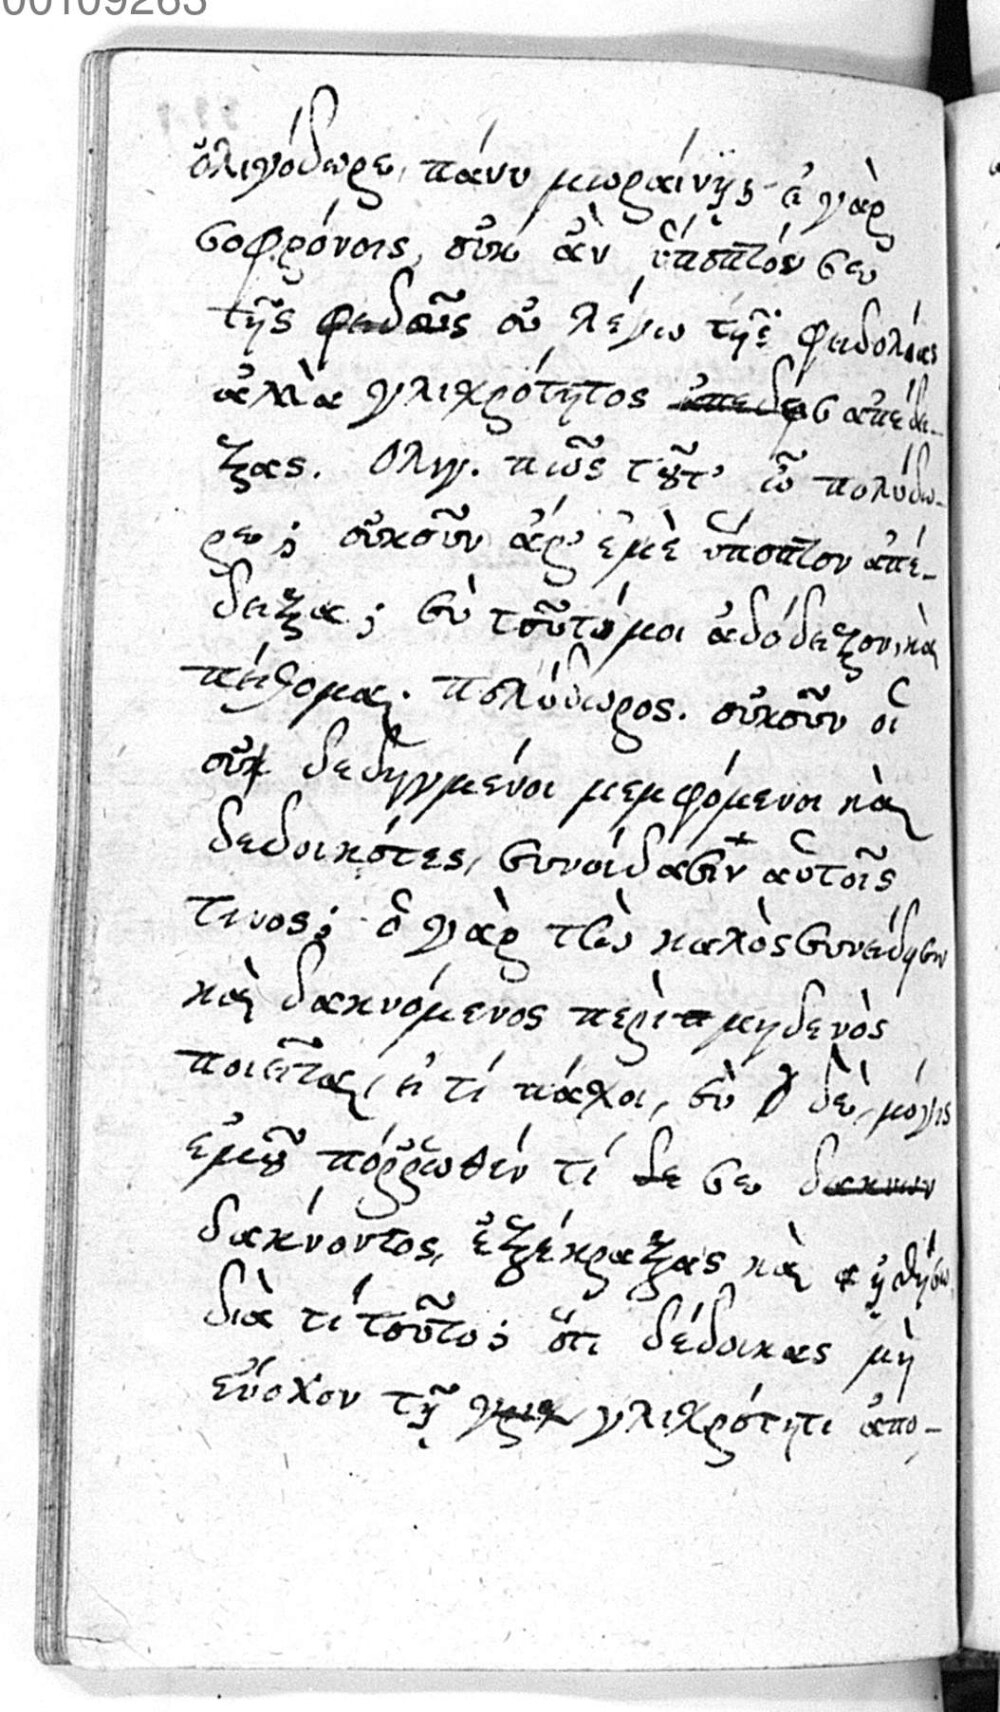 00109263
ὀλιγόδωρε, πάνυ μωραίνῃς· εἰ γὰρ
σοφρόνοις, οὐκ ἂν ὑποπτόν σευ
τῆς φειδοῦς οὐ λέγω τῆς φειδολίας
ἀλλὰ γλιχρότητος ἀπέδει-
ξας. Ολιγ. πῶς τοῦτ' ὦ πολύδω-
ρε; οὐκοῦν ἄρ' ἐμὲ ὕποπτον ἀπέ-
δειξα; σὺ τοῦτό μοι ἀδόδειξον, καὶ
πείθομαι. πολύδωρος. οὐκοῦν οἱ
οὐ δεδηγμένοι μεμφόμενοι καὶ
δεδοικότες, συνοίδασιν αὑτοῖς
τινος; ὁ γὰρ τὴν καλὸς συνείδησιν
καὶ δακνόμενος περὶ μηδενὸς
ποιεῖται, εἴ τί πάχοι, σὺ δὲ, μόγις
ἐμοῦ πόῤῥωθέν τί σευ δακνων
δακνοντος, ἐξέκραξας καὶ
διὰ τί τοῦτο; ὅτι δέδοικας μὴ
εὔοχον τῇ γλιχρότητι ἀπο-